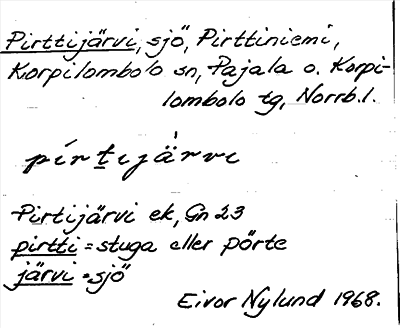 Pirttijärvi, sjö, Pirttiniemi,
Korpilombolo sn, Pajala o. Korpi-
lombolo tg, Norrb.l.
pírtijä̀rvi
Pirtijärvi ek, Gn 23
pirtti = stuga eller pörte
järvi = sjö
Eivor Nylund 1968.